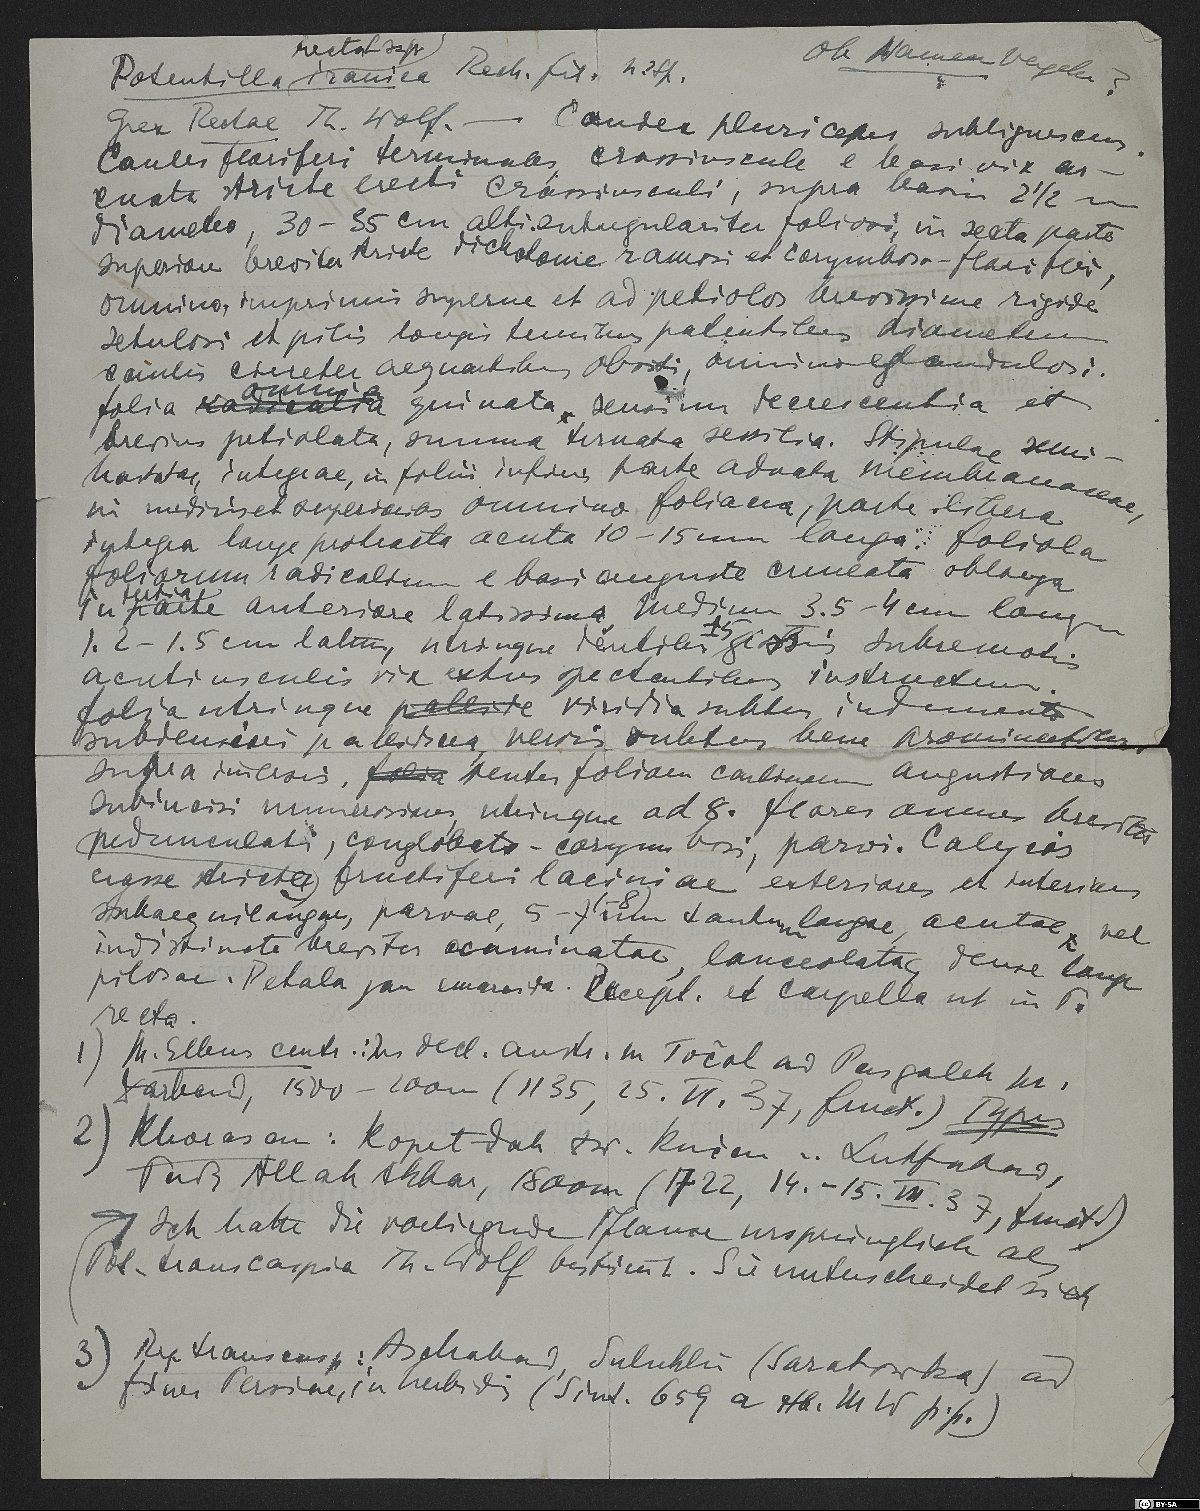 Potentilla iranica Rech. fil. n. sp.
Ob Namen Vergeben?
Grex Rectae Th. Wolf. — Caudex pluriceps sublignescens.
Caules floriferi terminales, crassiuscule e basi vix ar-
cuata stricte erecti crassiusculi, supra basin 2½ m
diametro, 30-35 cm alti foliosi, in sexta parte
superiore breviter stricte dichotome ramosi et corymboso-floriferi,
omnino, imprimis superne et ad petiolos brevissime rigide
setulosi et pilis longis tenuibus patentibus diametrum
caulis circiter aequantibus obsiti, omnino eglandulosi.
folia omnia quinata, sensim decrescentia et
brevius petiolata, summa ternata sessilia. Stipulae semi-
hastatae, integrae, in foliis infimis parte adnata membranaceae,
in mediis et superioribus omnino foliacea, parte libera
integra longe protracta acuta 10-15 mm longa. foliola
foliorum radicalium e basi anguste cuneata oblonga
in tertia parte anteriore latissima, medium 3.5-4 cm longum
1.2-1.5 cm latum, utrinque dentibus 15 subremotis
acutiusculis vix extus spectantibus instructum.
folia utrinque pallide viridia subtus indumento
subdensiori pallidiora, nervis subtus bene prominentibus
supra impressis, folia dentes foliorum caulinorum angustiores
subincisi numerosiores, utrinque ad 8. flores omnes breviter
pedunculati, conglobato-corymbosi, parvi. Calycis
fructiferi laciniae exteriores et interiores
subaequilongae, parvae, 5-7(-8) mm tantum longae, acutae, vel
indistincte breviter acuminatae, lanceolatae, dense longe
pilosae. Petala jam emarcida. Recept. et carpella ut in P.
recta.
1) M. Elburs centr.: in decl. austr. m Točal ad Pasgaleh pr.
Darband, 1500- (1135, 25. VI. 37, fruct.) Typus
2) Khorasan: Kopet-dagh zw. Kučan u. Lutfabad,
Paß Allah Akbar, 1800m (1722, 14.-15. VII. 37, fruct.)
Ich hatte die vorliegende Pflanze ursprünglich als
Pot. transcaspia Th. Wolf bestimmt. Sie unterscheidet sich
3) Reg. transcasp.: Aschabad, Suluklü (Saratowka) ad
fines Persiae, in herbidis (Sint. 659 a MW p.p.)